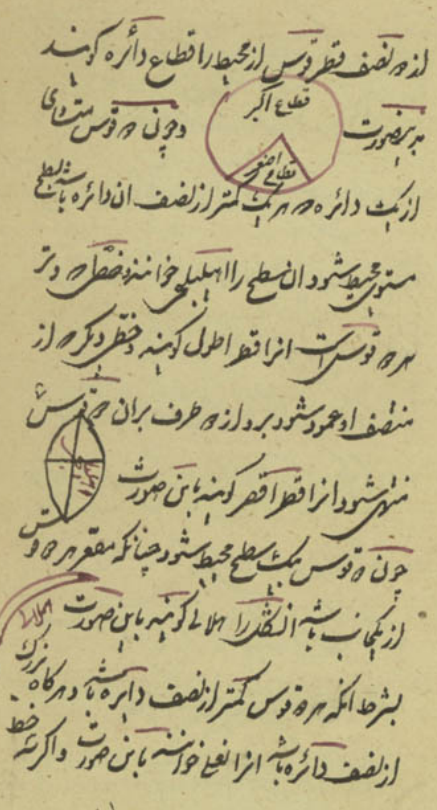 از دو نصف قطر و قوس از محیط را قطاع دائره گویند
بدینصورت قطاع اکبر قطاع اصغر و چون دو قوس متساوی
از یک دائره هر یک کمتر از نصف ان دائره باشد بسطح
مستوی محیط شود ان سطح را اهلیلجی خوانند و خطی که وتر
هر دو قوس است انرا قطر اطول گویند و خطی دیگر که از
منتصف او عمود شود بر و از دو طرف بران دو قوس
منتهی شود انرا قطر اقصر گویند باین صورت اهلیلجی
چون دو قوس بیک سطح محیط شود چنانکه مقعر هر دو
از یکجانب باشد انشکل را هلالی گویند باین صورت هلالی
بشرط انکه هر دو قوس کمتر از نصف دایره باشد و هرگاه بزرگ
از نصف دائره باشد انرا نعلی خوانند باین صورت و اگر سه خط